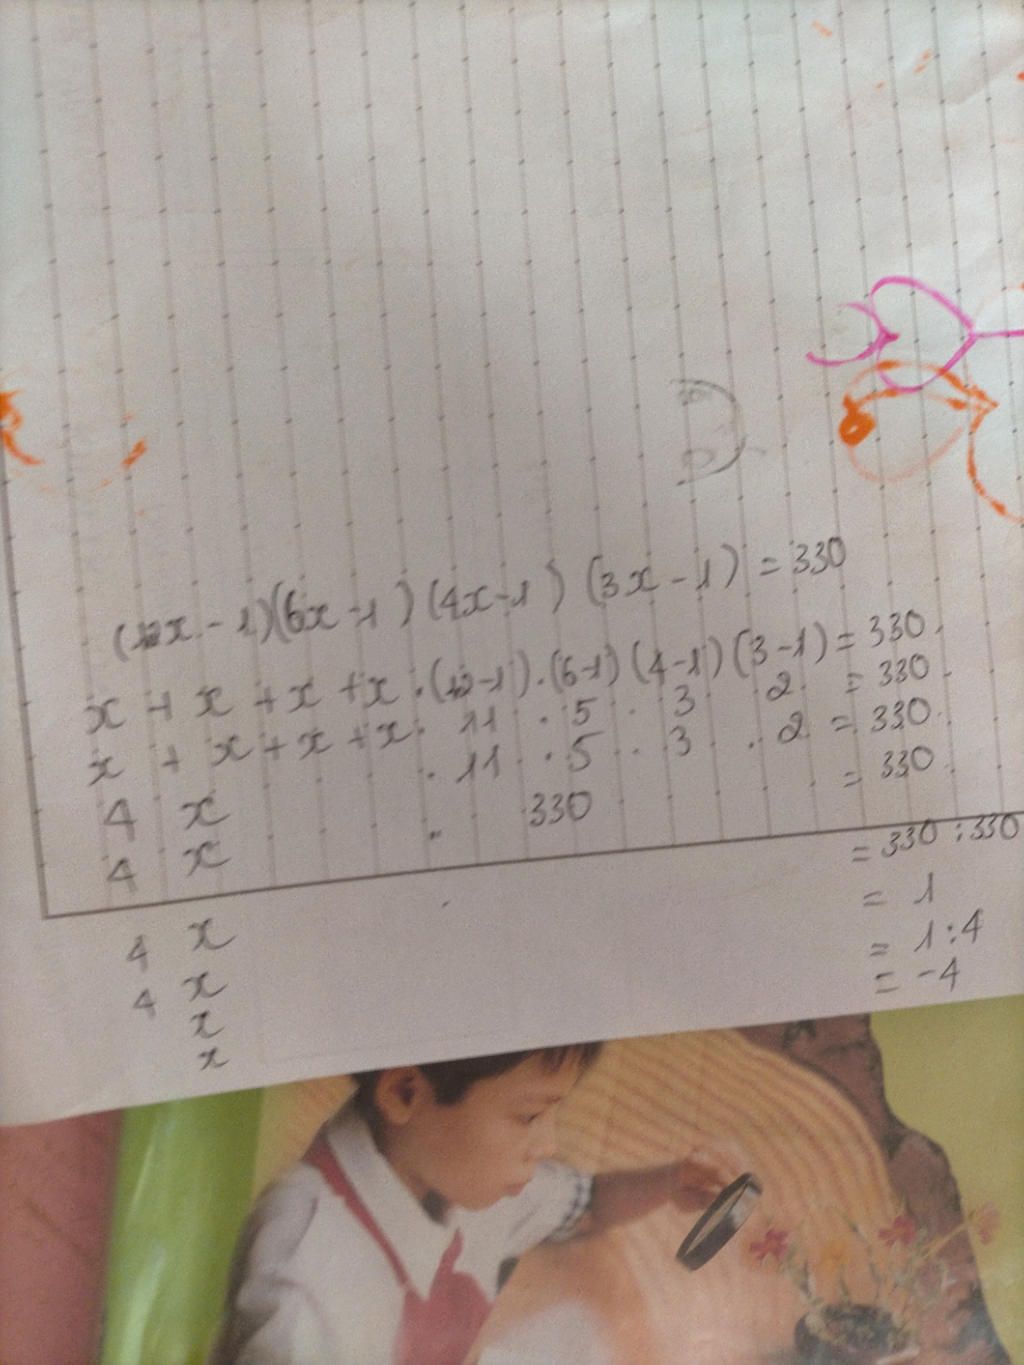 (12x - 1)(6x - 1)(4x - 1)(3x - 1) = 330
x + x + x + x . (12 - 1) . (6 - 1)(4 - 1)(3 - 1) = 330
x + x + x + x . 11 . 5 . 3 2 = 330
4 x . 11 . 5 . 3 . 2 = 330
4 x . 330 = 330
4 x = 330 : 330
4 x = 1
x = 1 : 4
x = -4